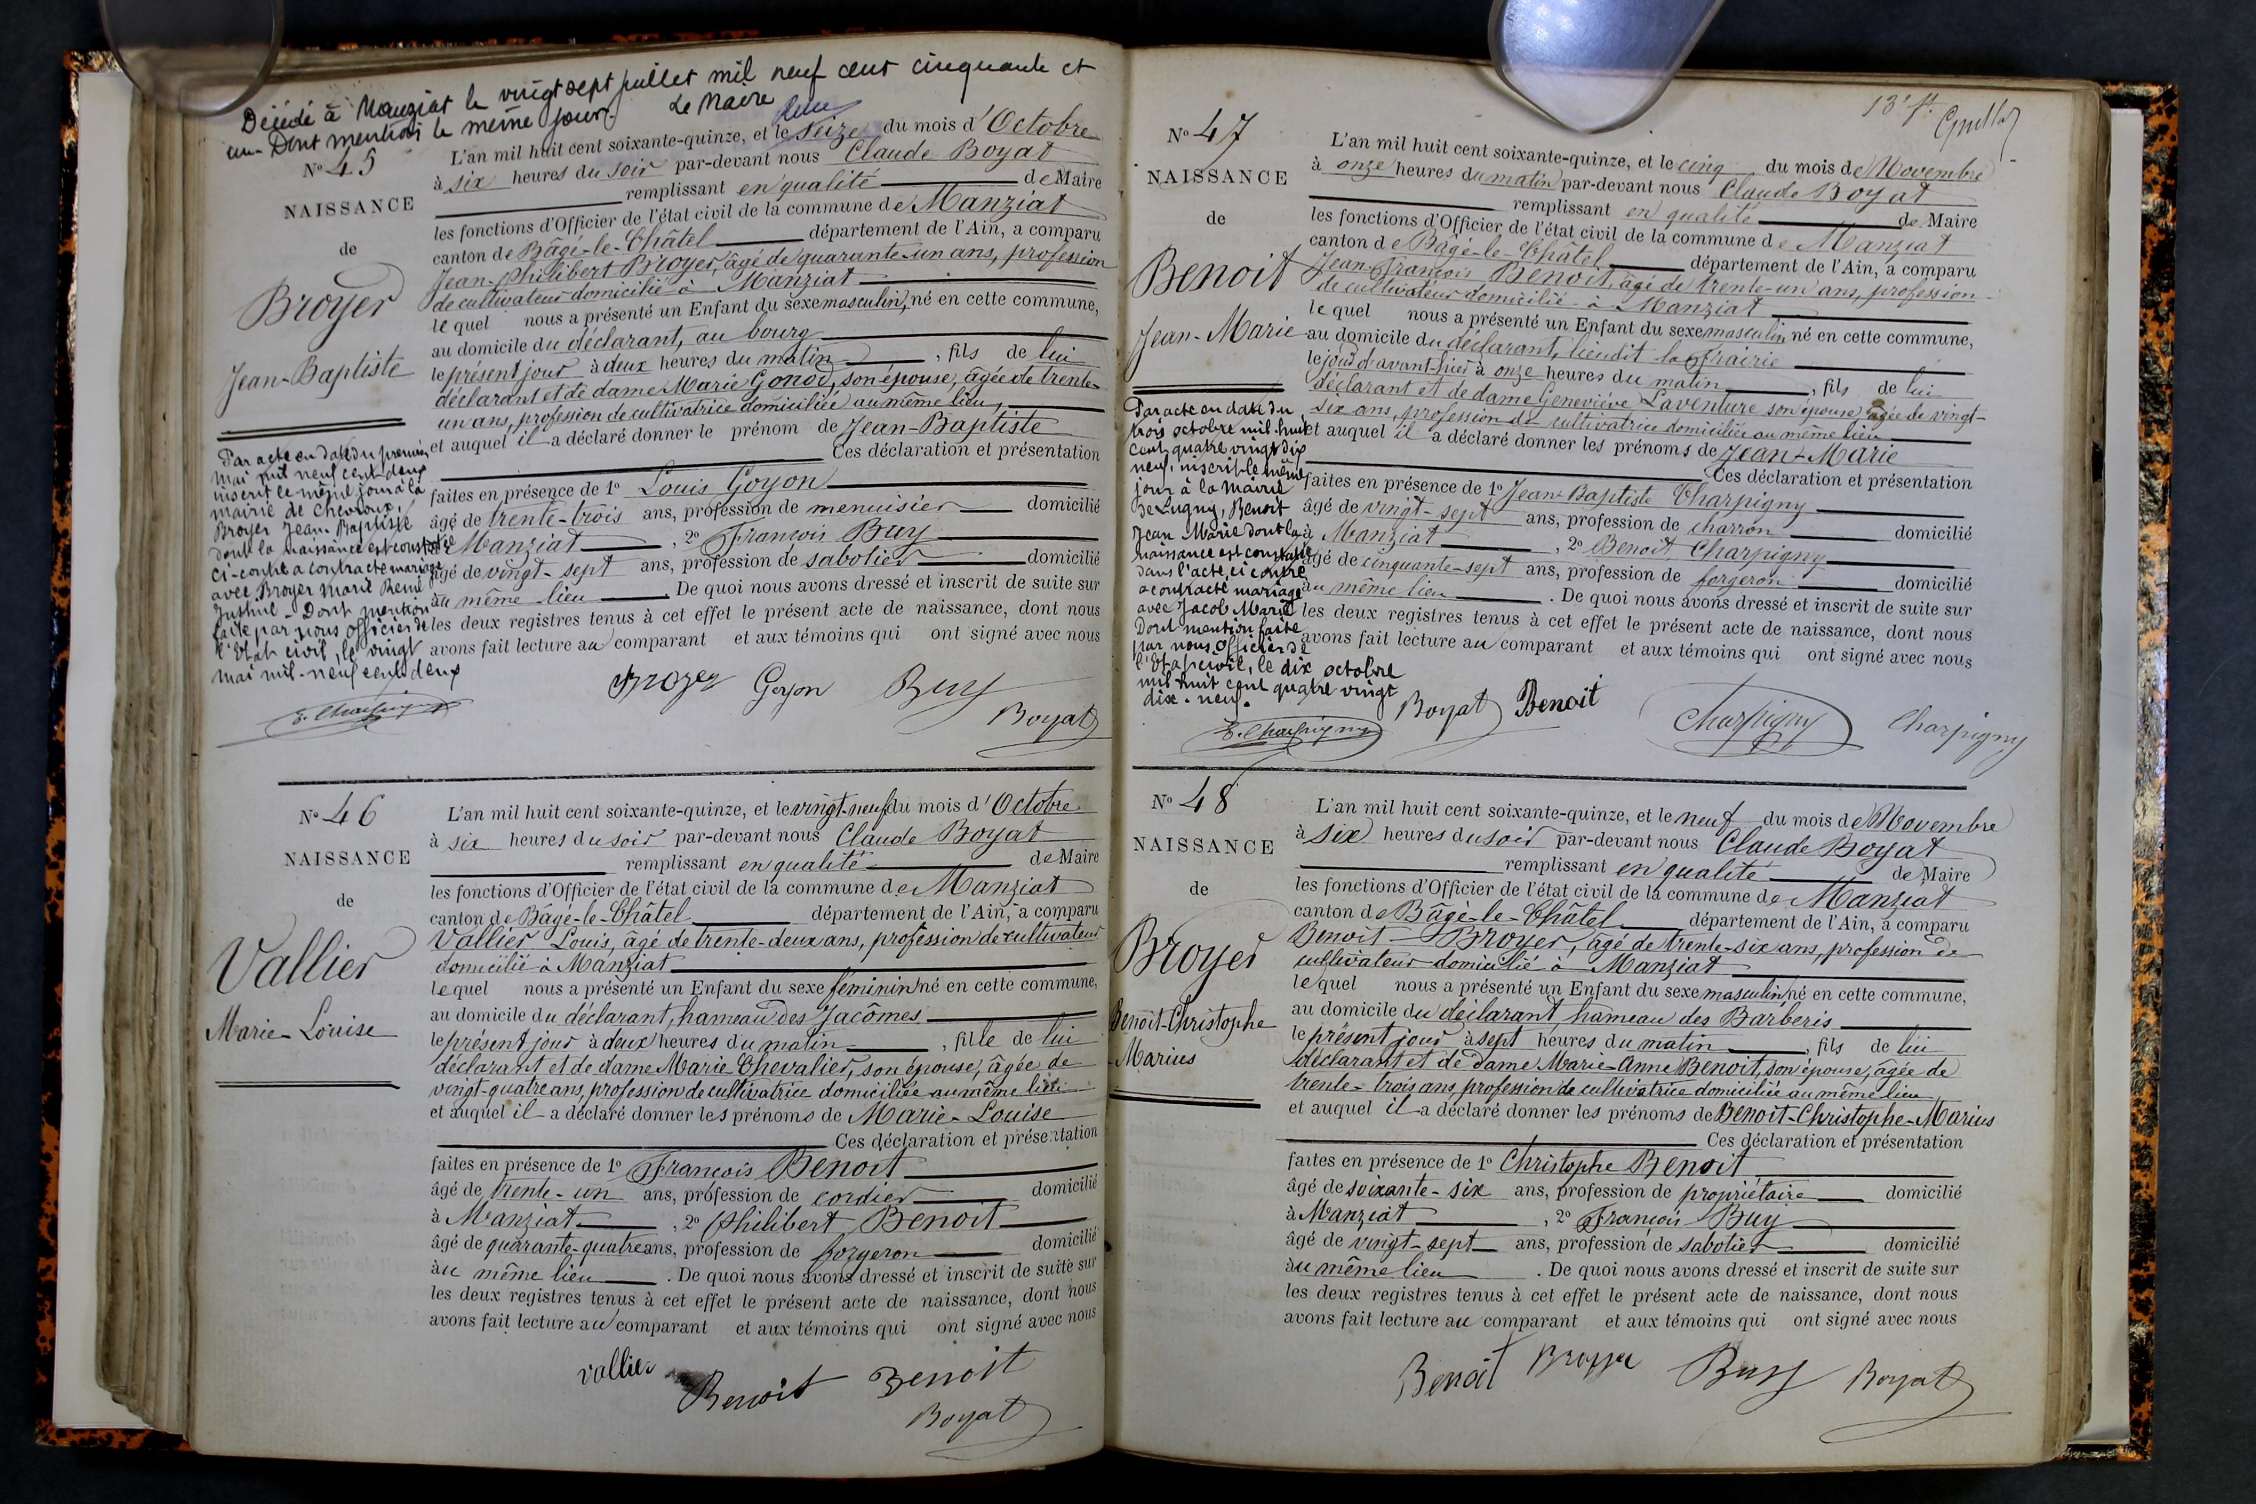 Décédé à Manziat le vingt sept juillet mil neuf cent cinquante et
un - Dont mention le même jour. Le Maire
No 45
NAISSANCE
de
Broyer
Jean-Baptiste
Par acte en date du premier
mai mil neuf cent deux
inscrit le même jour à la
mairie de Chevroux,
Broyer Jean Baptiste
dont la naissance est constatée
ci-contre a contracté mariage
avec Broyer Marie René
Justine - Dont mention
faite par nous officier de
l'Etat civil, le vingt
mai mil-neuf cent deux
E. Charpigny
L'an mil huit cent soixante-quinze, et le seize du mois d'Octobre
à six heures du soir par-devant nous Claude Boyat
remplissant en qualité de Maire
les fonctions d'Officier de l'état civil de la commune de Manziat
canton de Bâgé-le-Châtel département de l'Ain, a comparu
Jean-Philibert Broyer, âgé de quarante-un ans, profession
de cultivateur domicilié à Manziat
lequel nous a présenté un Enfant du sexe masculin, né en cette commune,
au domicile du déclarant, au bourg
le présent jour à deux heures du matin, fils de lui
déclarant et de dame Marie Gonod, son épouse, âgée de trente-
un ans, profession de cultivatrice domiciliée au même lieu,
et auquel il a déclaré donner le prénom de Jean-Baptiste
Ces déclaration et présentation
faites en présence de 1o Louis Goyon
âgé de trente-trois ans, profession de menuisier domicilié
à Manziat, 2o François Buy
âgé de vingt-sept ans, profession de sabotier domicilié
au même lieu. De quoi nous avons dressé et inscrit de suite sur
les deux registres tenus à cet effet le présent acte de naissance, dont nous
avons fait lecture au comparant et aux témoins qui ont signé avec nous
Broyer Goyon Buy
Boyat
No 46
NAISSANCE
de
Vallier
Marie-Louise
L'an mil huit cent soixante-quinze, et le vingt-neuf du mois d'Octobre
à six heures du soir par-devant nous Claude Boyat
remplissant en qualité de Maire
les fonctions d'Officier de l'état civil de la commune de Manziat
canton de Bâgé-le-Châtel département de l'Ain, a comparu
Vallier Louis, âgé de trente-deux ans, profession de cultivateur
domicilié à Manziat
lequel nous a présenté un Enfant du sexe féminin né en cette commune,
au domicile du déclarant, hameau des Jacômes
le présent jour à deux heures du matin, fille de lui
déclarant et de dame Marie Chevalier, son épouse, âgée de
vingt-quatre ans, profession de cultivatrice domiciliée au même lieu
et auquel il a déclaré donner les prénoms de Marie-Louise
Ces déclaration et présentation
faites en présence de 1o François Benoit
âgé de trente-un ans, profession de cordier domicilié
à Manziat, 2o Philibert Benoit
âgé de quarante-quatre ans, profession de forgeron domicilié
au même lieu. De quoi nous avons dressé et inscrit de suite sur
les deux registres tenus à cet effet le présent acte de naissance, dont nous
avons fait lecture au comparant et aux témoins qui ont signé avec nous
vallier Benoit Benoit
Boyat
13e ft.
No 47
NAISSANCE
de
Benoit
Jean-Marie
Par acte en date du
trois octobre mil-huit
cent quatre vingt dix
neuf, inscrit le même
jour à la Mairie
de Lugny, Benoit
Jean Marie dont la
naissance est constatée
dans l'acte ci contre
a contracté mariage
avec Jacob Marie
Dont mention faite
par nous officier de
l'Etat civil, le dix octobre
mil huit cent quatre vingt
dix-neuf.
E. Charpigny
L'an mil huit cent soixante-quinze, et le cinq du mois de Novembre
à onze heures du matin par-devant nous Claude Boyat
remplissant en qualité de Maire
les fonctions d'Officier de l'état civil de la commune de Manziat
canton de Bâgé-le-Châtel département de l'Ain, a comparu
Jean-François Benoit, âgé de trente-un ans, profession
de cultivateur domicilié à Manziat
lequel nous a présenté un Enfant du sexe masculin né en cette commune,
au domicile du déclarant, lieu dit la prairie
le jour d'avant-hier à onze heures du matin, fils de lui
déclarant et de dame Geneviève Laventure son épouse âgée de vingt-
six ans, profession de cultivatrice domiciliée au même lieu
et auquel il a déclaré donner les prénoms de Jean-Marie
Ces déclaration et présentation
faites en présence de 1o Jean-Baptiste Charpigny
âgé de vingt-sept ans, profession de charron domicilié
à Manziat, 2o Benoit Charpigny
âgé de cinquante-sept ans, profession de forgeron domicilié
au même lieu. De quoi nous avons dressé et inscrit de suite sur
les deux registres tenus à cet effet le présent acte de naissance, dont nous
avons fait lecture au comparant et aux témoins qui ont signé avec nous
Boyat Benoit Charpigny Charpigny
No 48
NAISSANCE
de
Broyer
Benoît-Christophe
Marius
L'an mil huit cent soixante-quinze, et le neuf du mois de Novembre
à six heures du soir par-devant nous Claude Boyat
remplissant en qualité de Maire
les fonctions d'Officier de l'état civil de la commune de Manziat
canton de Bâgé-le-Châtel département de l'Ain, a comparu
Benoit Broyer, âgé de trente-six ans, profession de
cultivateur domicilié à Manziat
lequel nous a présenté un Enfant du sexe masculin né en cette commune,
au domicile du déclarant, hameau des Barberis
le présent jour à sept heures du matin, fils de lui
déclarant et de dame Marie-Anne Benoit, son épouse, âgée de
trente-trois ans, profession de cultivatrice domiciliée au même lieu
et auquel il a déclaré donner les prénoms de Benoit-Christophe-Marius
Ces déclaration et présentation
faites en présence de 1o Christophe Benoit
âgé de soixante-six ans, profession de propriétaire domicilié
à Manziat, 2o François Buy
âgé de vingt-sept ans, profession de sabotier domicilié
au même lieu. De quoi nous avons dressé et inscrit de suite sur
les deux registres tenus à cet effet le présent acte de naissance, dont nous
avons fait lecture au comparant et aux témoins qui ont signé avec nous
Benoit Broyer Buy Boyat